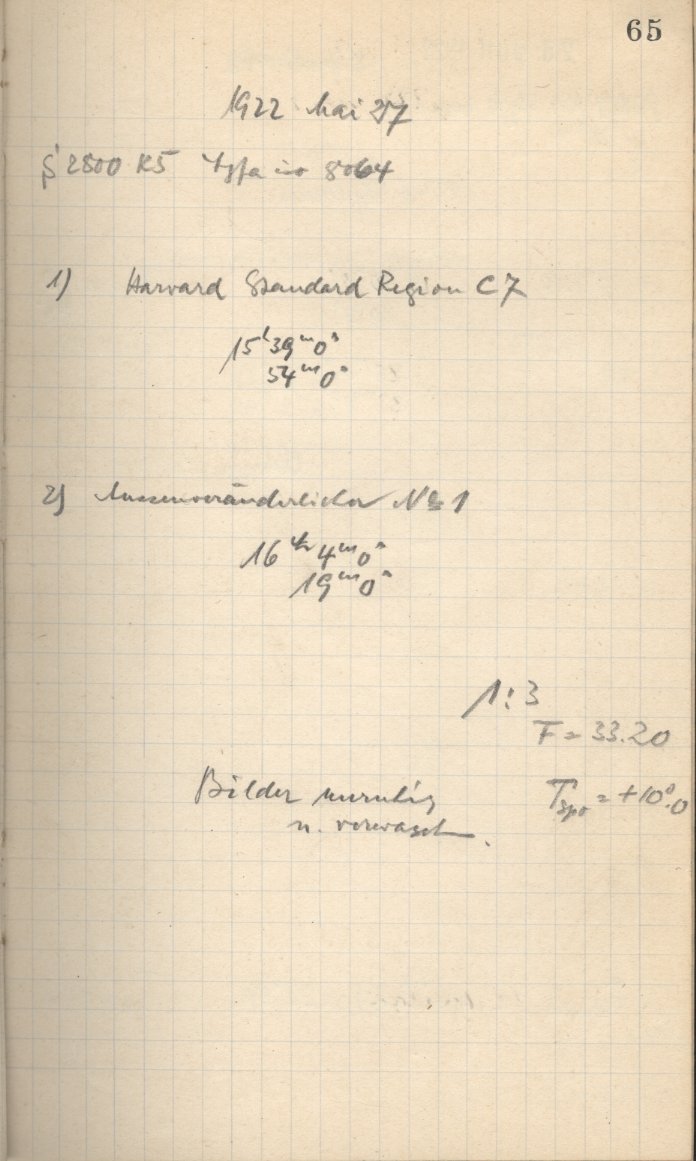 65
1922 Mai 27
S 2800 K5 8064
1) Harvard Standard Region C7
15ʰ39ᵐ0ˢ
54ᵐ0ˢ
2) Aussenveränderlicher No 1
16ʰ 4ᵐ0ˢ
19ᵐ0ˢ
1:3
F = 33.20
Bilder unruhig
T = +10°.0
u. verwaschen.